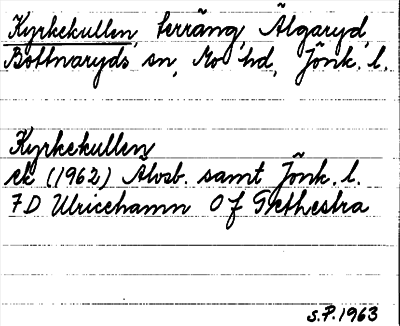 Kyrkekullen, terräng, Älgaryd,
Bottnaryds sn, Mo hd, Jönk. l.
Kyrkekullen
ek (1962) Älvsb. samt Jönk. l.
7D Ulricehamn 0 f
S.P. 1963